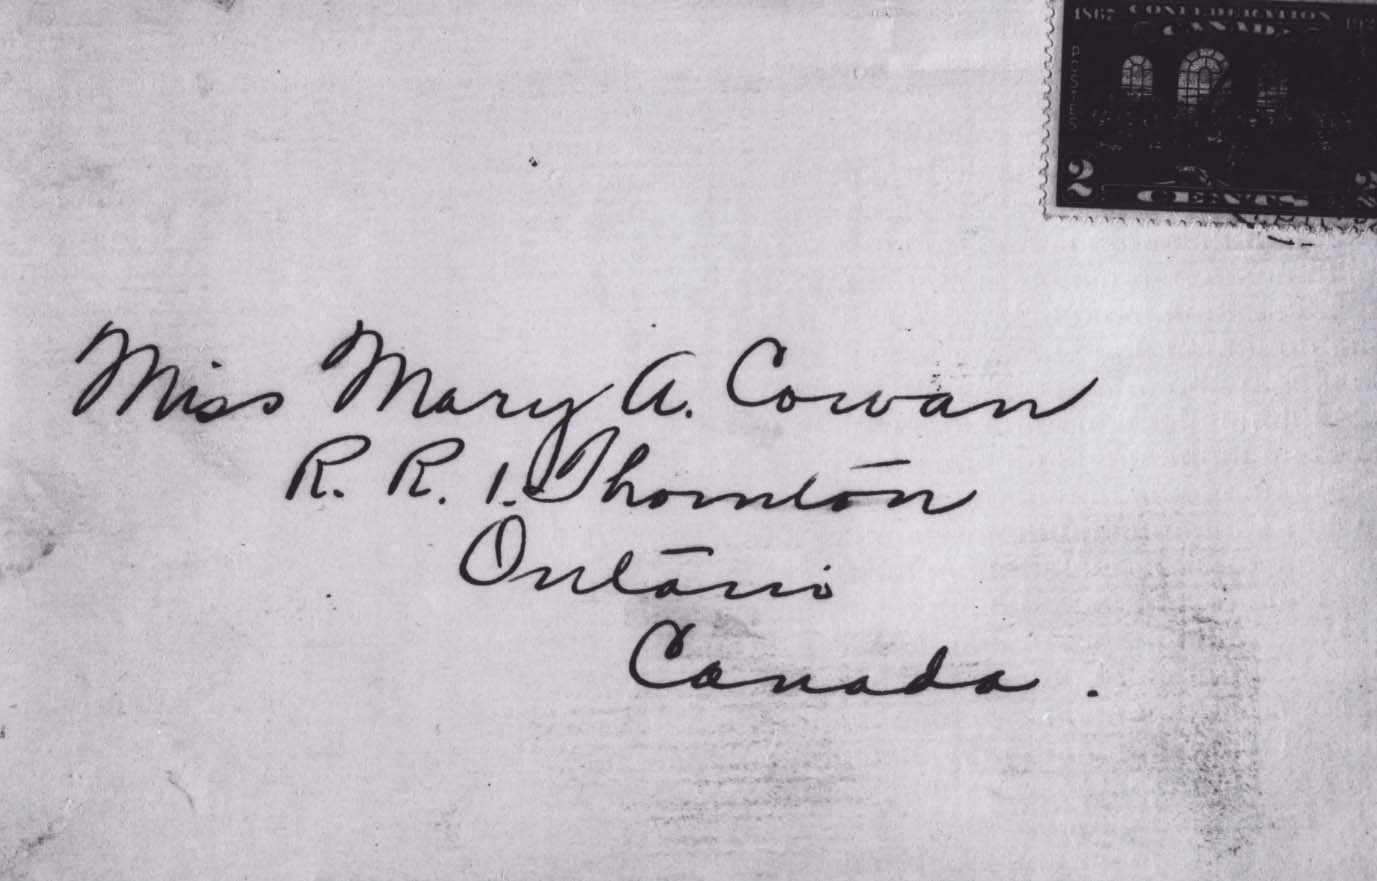 1867 CONFEDERATION 192
CANADA
POSTES
2 CENTS 2
Miss Mary A. Cowan
R. R. 1. Thornton
Ontario
Canada.